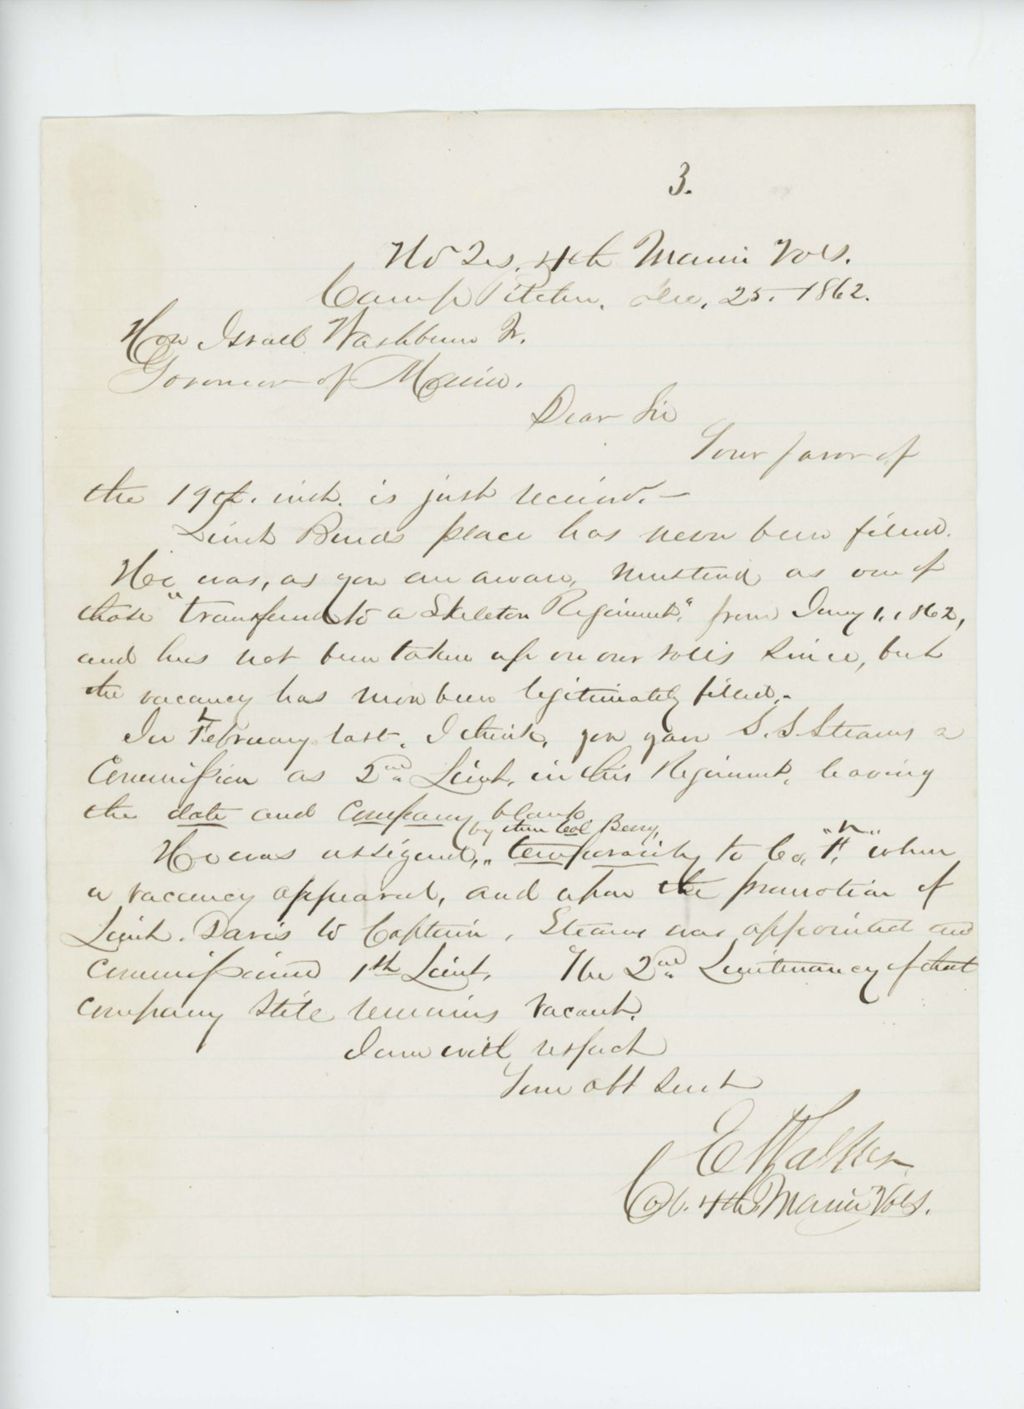 3.
Hd Qrs. 4th Maine Vols.
Camp Pitcher, Dec. 25. 1862.
Hon Israel Washburn Jr.
Governor of Maine.
Dear Sir
Your favor of
the 19th. inst. is just received. -
Lieut Birds place has never been filled.
He was, as you are aware, mustered as one of
those "transferred to a Skeleton Regiment" from Jany 1, 1862,
and has not been taken up on our rolls since, but
the vacancy has never been legitimately filled. -
In February last, I think, you gave S. S. Stearns a
Commission as 2nd Lieut. in this Regiment, leaving
the date and company blank
(by then Col Berry,
He was assigned, temporarily to Co. "F" when
a vacancy appeared, and upon the promotion of
Lieut. Davis to Captain, Stearns was appointed and
commissioned 1st Lieut. The 2nd Lieutenancy of that
company still remains vacant.
I am with respect
Your obt Servt
E Walker
Col. 4th Maine Vols.